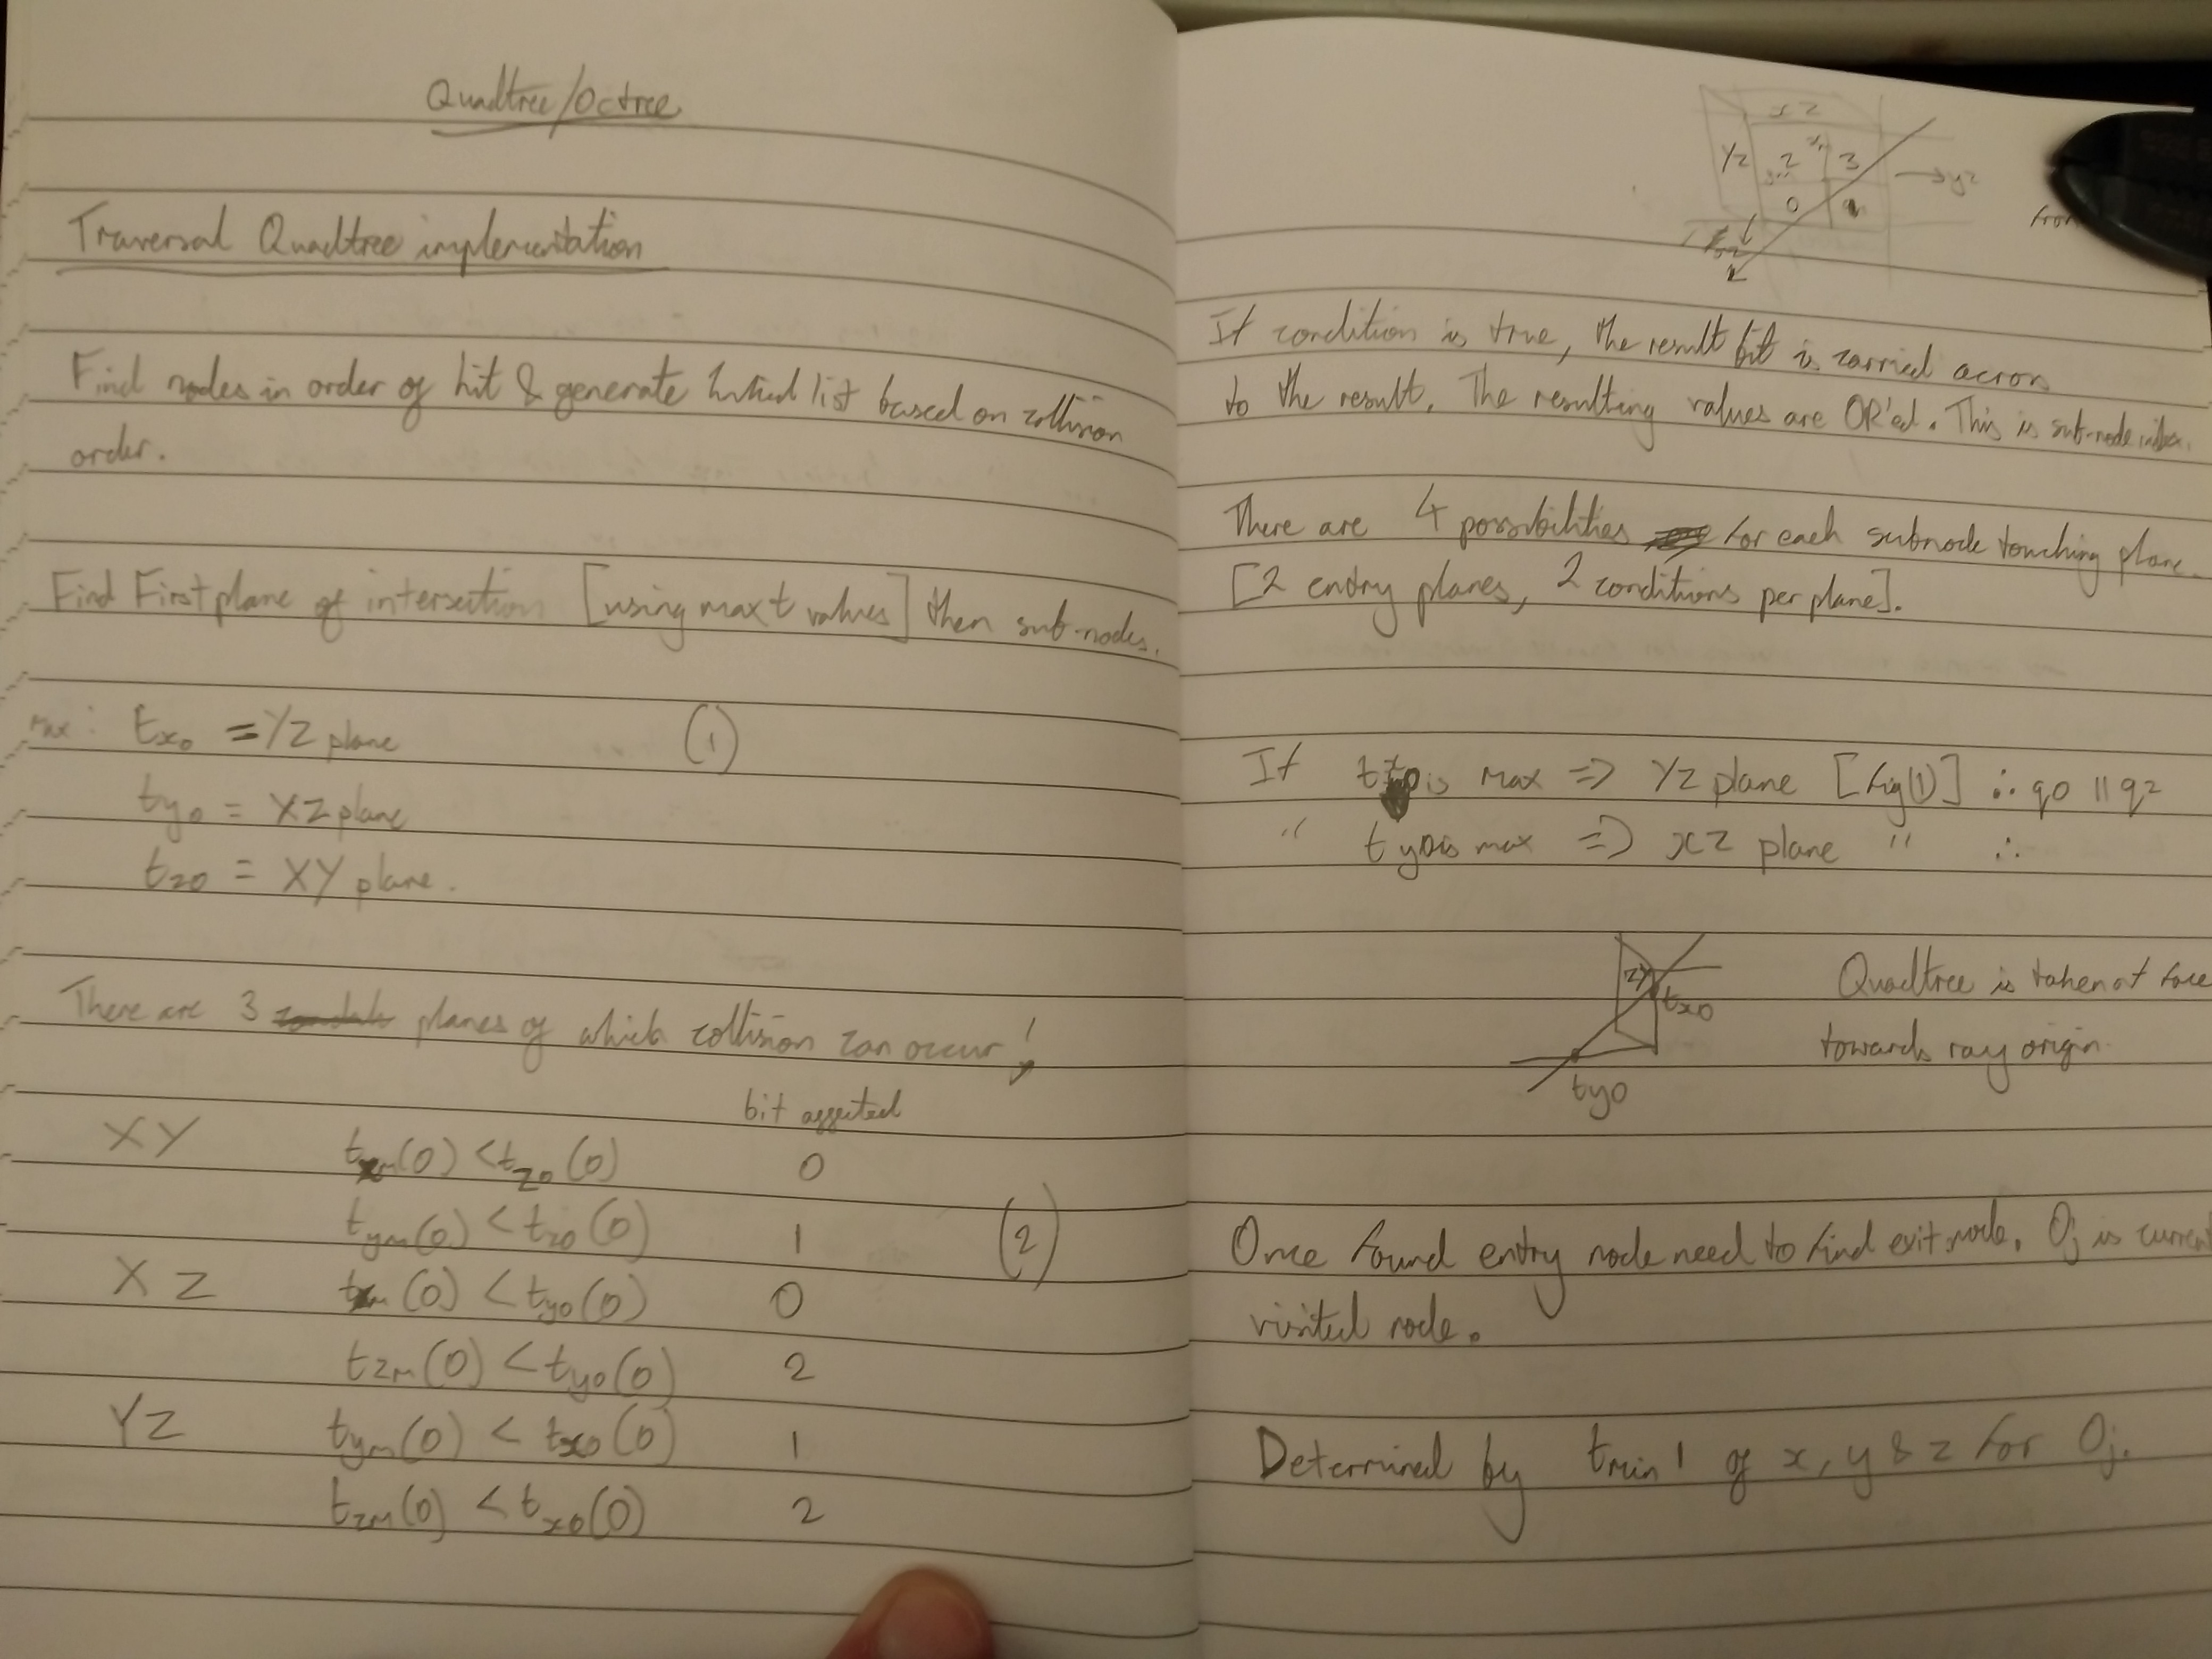 Quadtree/Octree
Traversal Quadtree implementation
Find nodes in order of hit & generate linked list based on collision
order.
Find First plane of intersection [using max t values] then sub-nodes.
Max: tx0 = YZ plane (1)
ty0 = XZ plane
tz0 = XY plane.
There are 3 planes of which collision can occur!
bit affected
XY t m(0) < tz0(0) 0
tym(0) < tz0(0) 1 (2)
XZ t m(0) < ty0(0) 0
tzm(0) < ty0(0) 2
YZ tym(0) < tx0(0) 1
tzm(0) < tx0(0) 2
xz
Yz 2 3 → yz
0
If condition is true, the result bit is carried across
to the result. The resulting values are OR'ed. This is sub-node index.
There are 4 possibilities for each subnode touching plane.
[2 entry planes, 2 conditions per plane].
If tx0 is max => YZ plane [fig(1)] ∴ q0 || q2
" ty0 is max => xz plane " ∴
zy
tx0
ty0
Quadtree is taken at face
towards ray origin.
Once found entry node need to find exit node. Oj is current
visited node.
Determined by tmin1 of x, y & z for Oj.